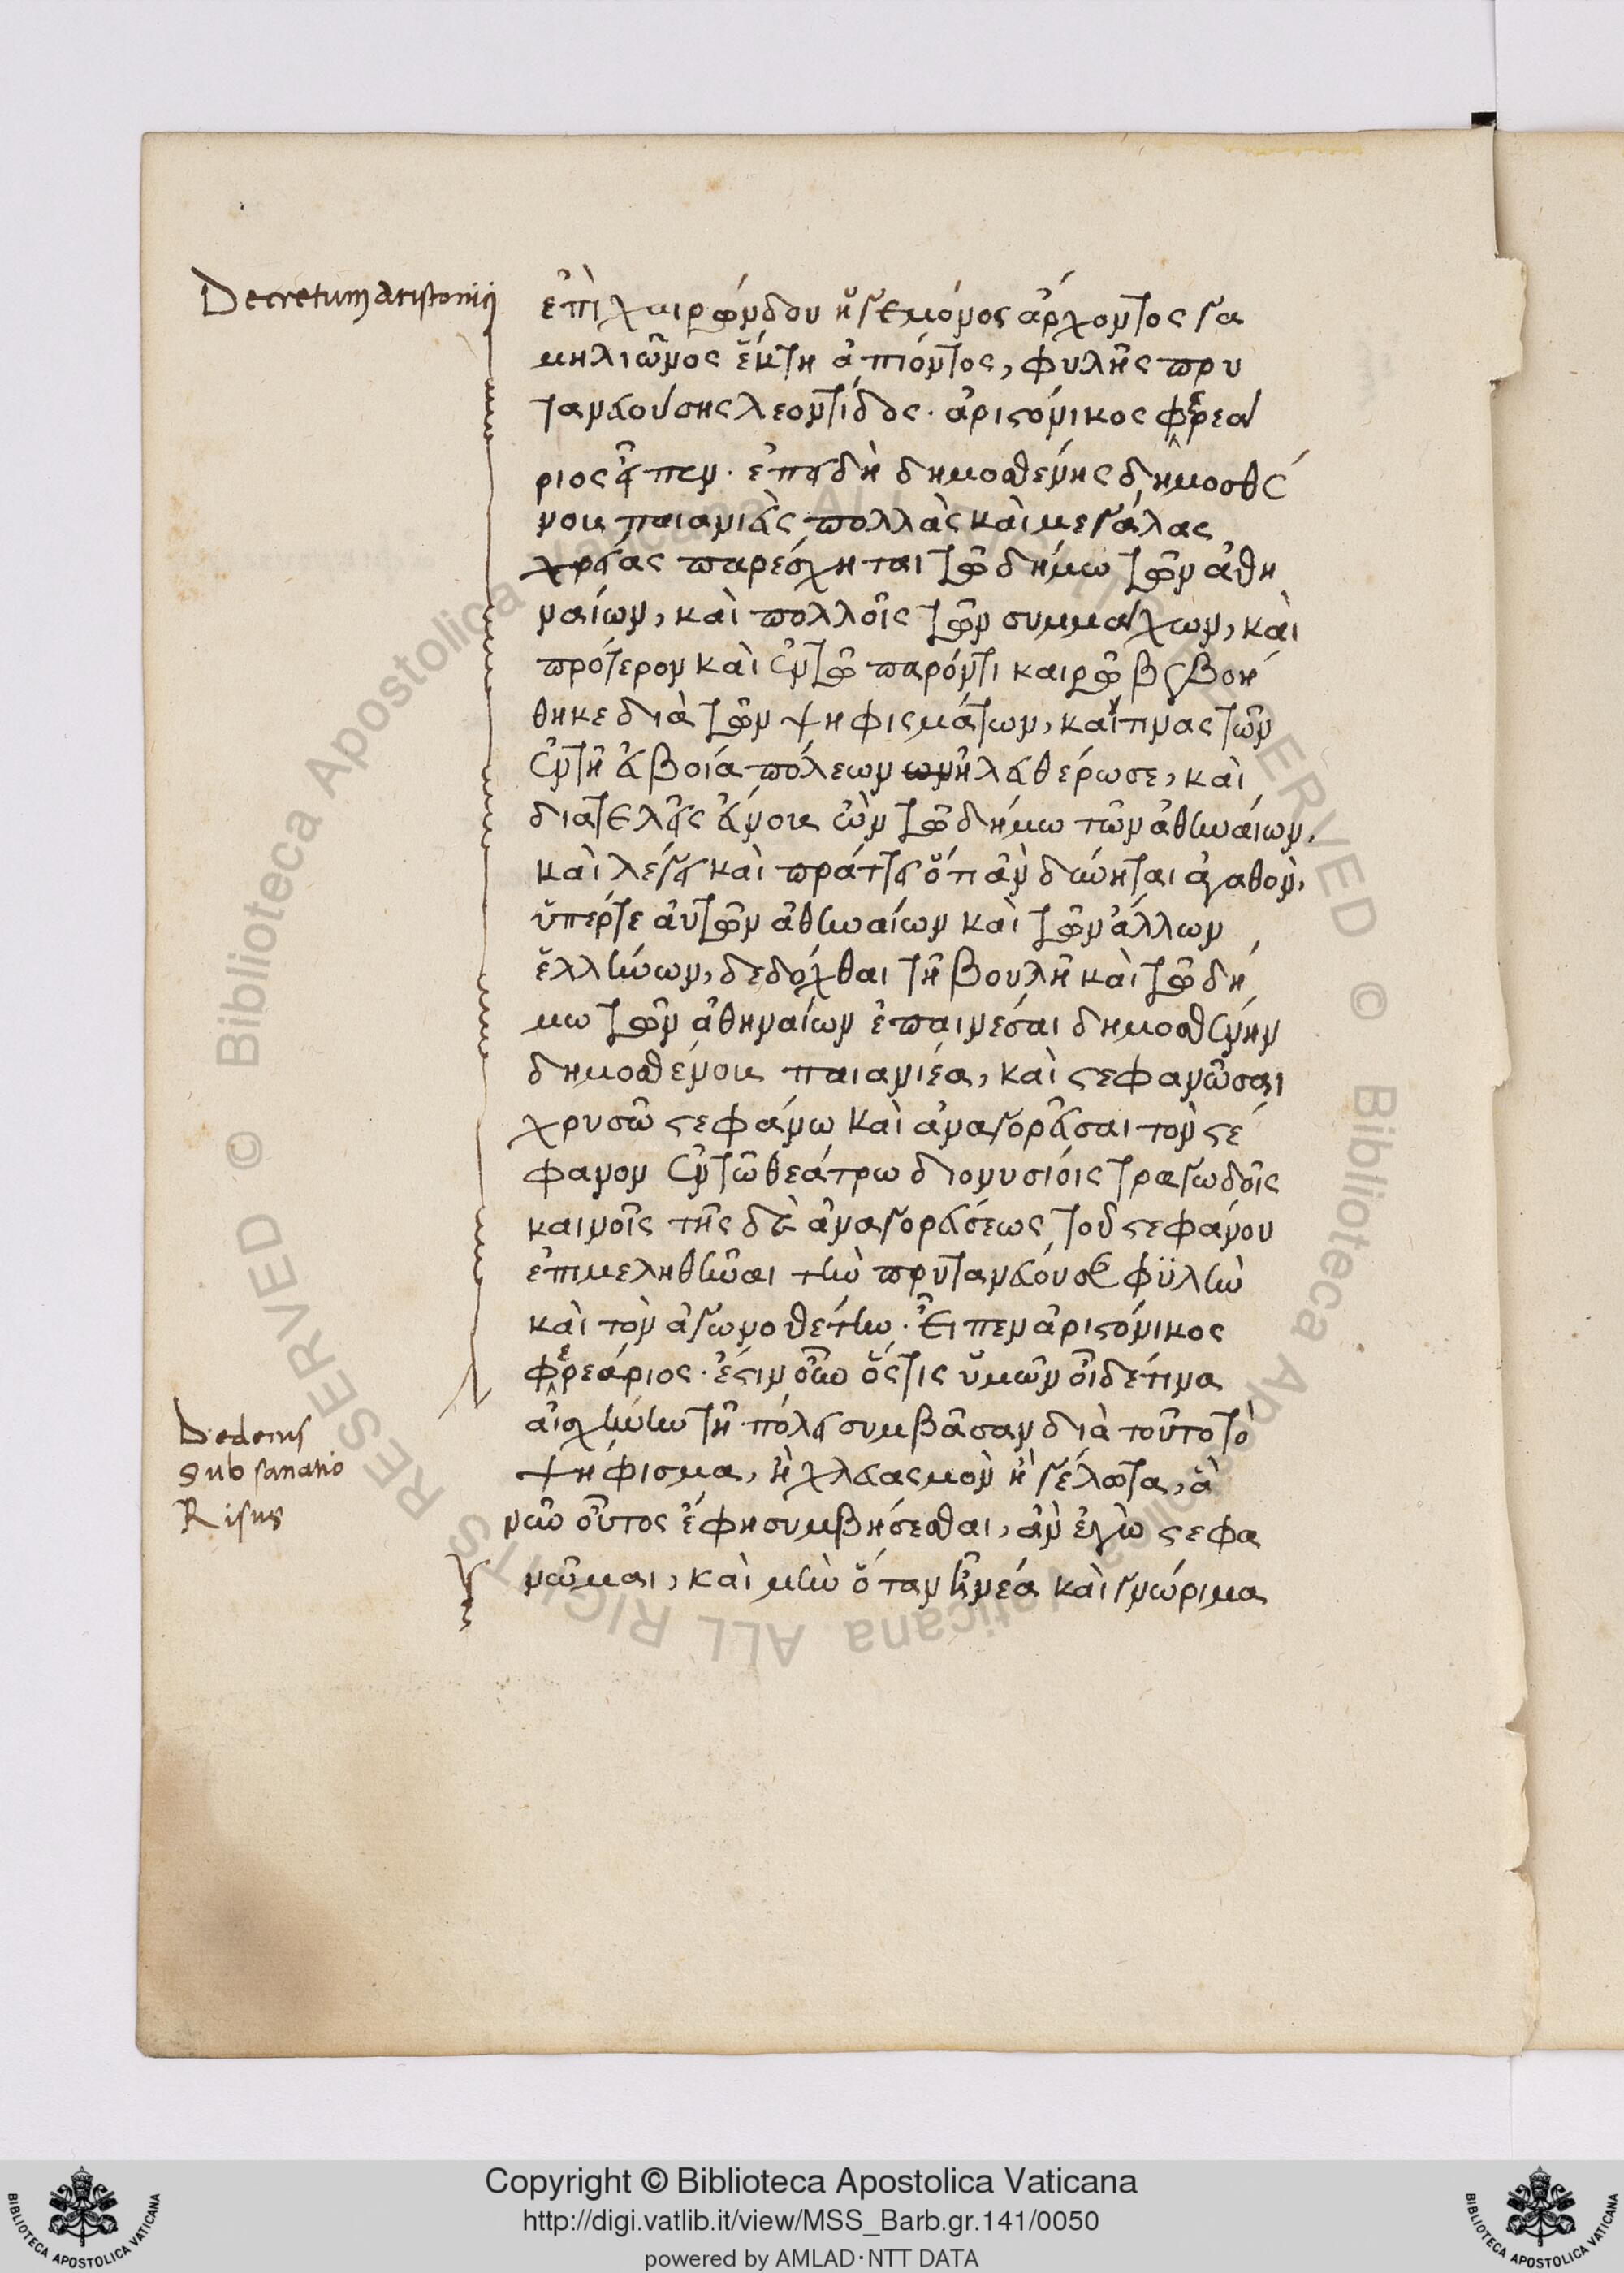 Decretum Aristonici
ἐπὶ χαιρώνδου ἡγεμόνος ἄρχοντος γα
μηλιῶνος ἕκτη ἀπιόντος, φυλῆς πρυ
τανευούσης λεοντίδος. ἀριστόνικος φρεά
ριος εἶπεν. ἐπειδὴ δημοσθένης δημοσθέ
νους παιανιεὺς πολλὰς καὶ μεγάλας
χρείας παρέσχηται τῶ δήμω τῶν ἀθη
ναίων, καὶ πολλοῖς τῶν συμμάχων, καὶ
πρότερον καὶ ἐν τῶ παρόντι καιρῶ βεβοή
θηκε διὰ τῶν ψηφισμάτων, καί τινας τῶν
ἐν τῆ εὐβοία πόλεων ἠλευθέρωσε, καὶ
διατελεῖς εὔνους ὢν τῶ δήμω τῶν ἀθηναίων.
καὶ λέγει καὶ πράττει ὅ τι ἂν δύνηται ἀγαθὸν,
ὑπέρ τε αὐτῶν ἀθηναίων καὶ τῶν ἄλλων
ἑλλήνων, δεδόχθαι τῆ βουλῆ καὶ τῶ δή
μω τῶν ἀθηναίων ἐπαινέσαι δημοσθένην
δημοσθένους παιανιέα, καὶ στεφανῶσαι
χρυσῶ στεφάνω καὶ ἀναγορεῦσαι τὸν στέ
φανον ἐν τῶ θεάτρω διονυσίοις τραγωδοῖς
καινοῖς τῆς δὲ ἀναγορεύσεως τοῦ στεφάνου
ἐπιμεληθῆναι τὴν πρυτανεύουσαν φϋλὴν
καὶ τὸν ἀγωνοθέτην. εἶπεν ἀριστόνικος
φρεάριος. ἔστιν οὖν ὅστις ὑμῶν οἶδέ τινα
αἰσχύνην τῆ πόλει συμβᾶσαν διὰ τοῦτο τὸ
ψήφισμα, ἢ χλευασμὸν ἢ γέλωτα, ἃ
νῦν οὗτος ἔφη συμβήσεσθαι, ἂν ἐγὼ στεφα
νῶμαι, καὶ μὴν ὅταν ἦ νέα καὶ γνώριμα
Dedecus
Subsanatio
Risus
© Biblioteca Apostolica Vaticana ALL RIGHTS RESERVED
© Biblioteca Apostolica Vaticana ALL RIGHTS RESERVED
Copyright © Biblioteca Apostolica Vaticana
http://digi.vatlib.it/view/MSS_Barb.gr.141/0050
powered by AMLAD·NTT DATA
BIBLIOTECA APOSTOLICA VATICANA
BIBLIOTECA APOSTOLICA VATICANA